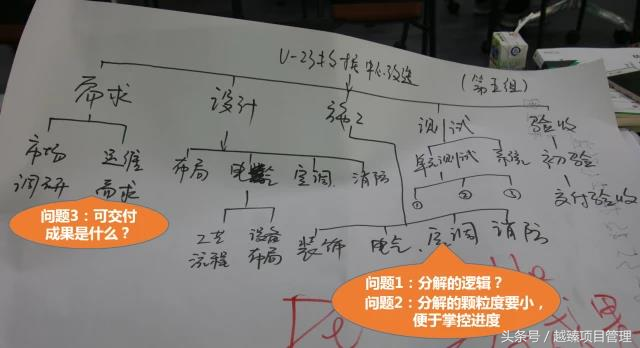 (第五组)
需求
设计
施工
测试
验收
市场
调研
运维
需求
布局
电器
空调
消防
单元测试
系统
初验
交付验收
①
②
③
工艺
流程
设备
布局
装饰
电气
空调
消防
问题3：可交付
成果是什么？
问题1：分解的逻辑？
问题2：分解的颗粒度要小，
便于掌控进度
头条号 / 越臻项目管理